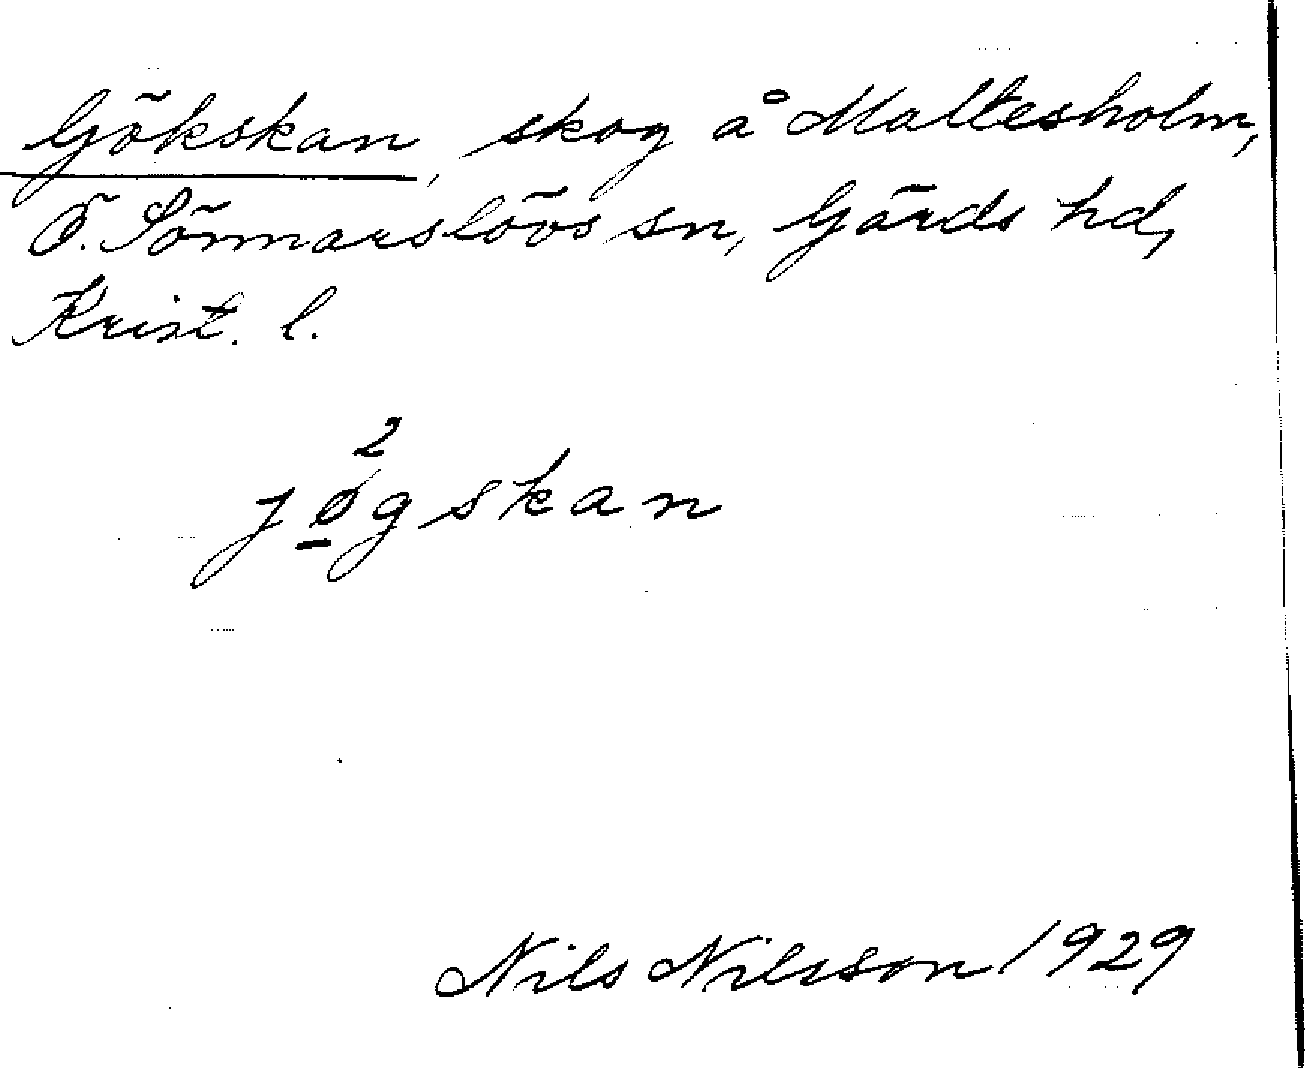 Gökskan, skog å Maltesholm,
Ö. Sönnarslövs sn, Gärds hd,
Krist. l.
2
jøgskan
Nils Nilsson 1929